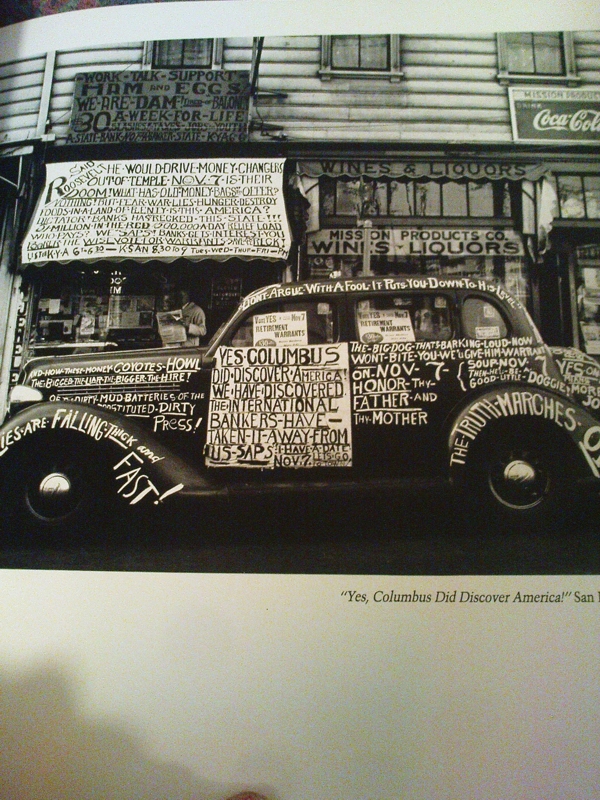 WORK-TALK-SUPPORT
HAM AND EGGS
WE-ARE-DAM
30 A-WEEK-FOR-LIFE
A-STATE-BANK-NO
MISSION PRODUCTS
DRINK
Coca-Cola
SAID
ROOSEVELT HE-WOULD-DRIVE-MONEY-CHANGERS
OUT OF TEMPLE NOV-7-IS-THEIR
DOOM! WHAT-HAS-OLD-MONEY-BAGS-OFFER?
NOTHING! BUT-FEAR-WAR-LIES-HUNGER-DESTROY
FOODS-IN-LAND-OF-PLENTY-IS-THIS-AMERICA?
BANKS HAVE
MILLION-IN-THE RED 500,000 A-DAY RELIEF LOAD
WHO-PAYS? WE SAPS! BANKS-GETS-INTEREST-YOU!
KSAN 8:30 TUES-WED-THUR-FRI
WINES & LIQUORS
MISSION PRODUCTS CO.
WINES & LIQUORS
DON'T-ARGUE-WITH-A-FOOL-IT PUTS-YOU-DOWN-TO-HIS-LEVEL
Vote YES Nov 7
RETIREMENT
WARRANTS
Vote YES Nov 7
RETIREMENT
WARRANTS
AND-HOW-THESE-MONEY COYOTES-HOWL
THE-BIGGER-THE-LIAR-THE-BIGGER-THE-HIRE!
DIRTY-MUD-BATTERIES OF THE
PROSTITUTED-DIRTY
PRESS!
LIES-ARE-FALLING-THICK and
FAST!
YES-COLUMBUS
DID-DISCOVER-AMERICA!
WE-HAVE-DISCOVERED
THE-INTERNATIONAL
BANKERS-HAVE-
TAKEN-IT-AWAY-FROM
US-SAPS! I-HAVE-A-DATE
NOV.7
THE-BIG-DOG-THAT'S-BARKING-LOUD-NOW
WONT-BITE-YOU-WE'LL GIVE HIM WARRANT
ON-NOV-7- SOUP-NOV 7
HONOR-THY- THEN-HE'LL-BE-A
FATHER-AND GOOD-LITTLE-DOGGIE
THY-MOTHER
THE-TRUTH-MARCHES-ON
"Yes, Columbus Did Discover America!" San